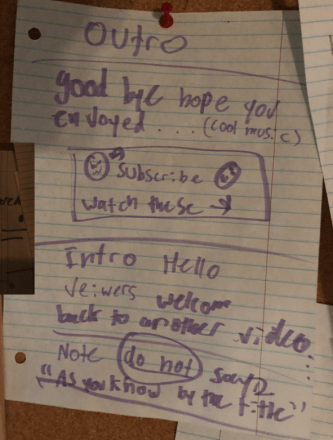 Outro
good bye hope you
enjoyed . . . (cool music)
subscribe
watch these →
Intro Hello
Veiwers welcome
back to another video
Note do not say
"As you know by the title"